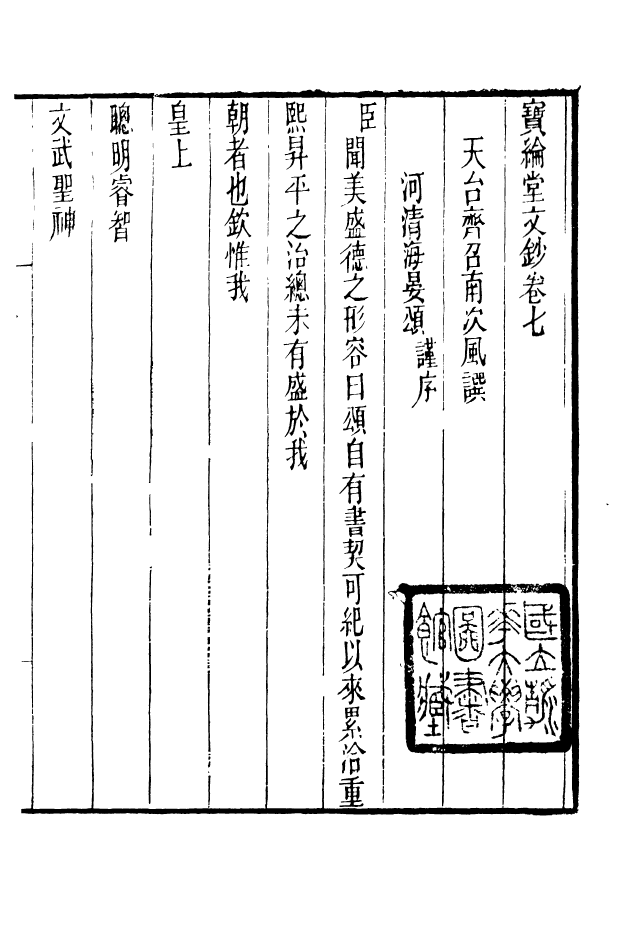 寶綸堂文鈔卷七
天台齊召南次風譔
河清海晏頌 謹序
臣聞美盛德之形容曰頌自有書契可紀以來累洽重
熙昇平之治總未有盛於我
朝者也欽惟我
皇上
聰明睿智
文武聖神
國立清
華大學
圖書
館藏